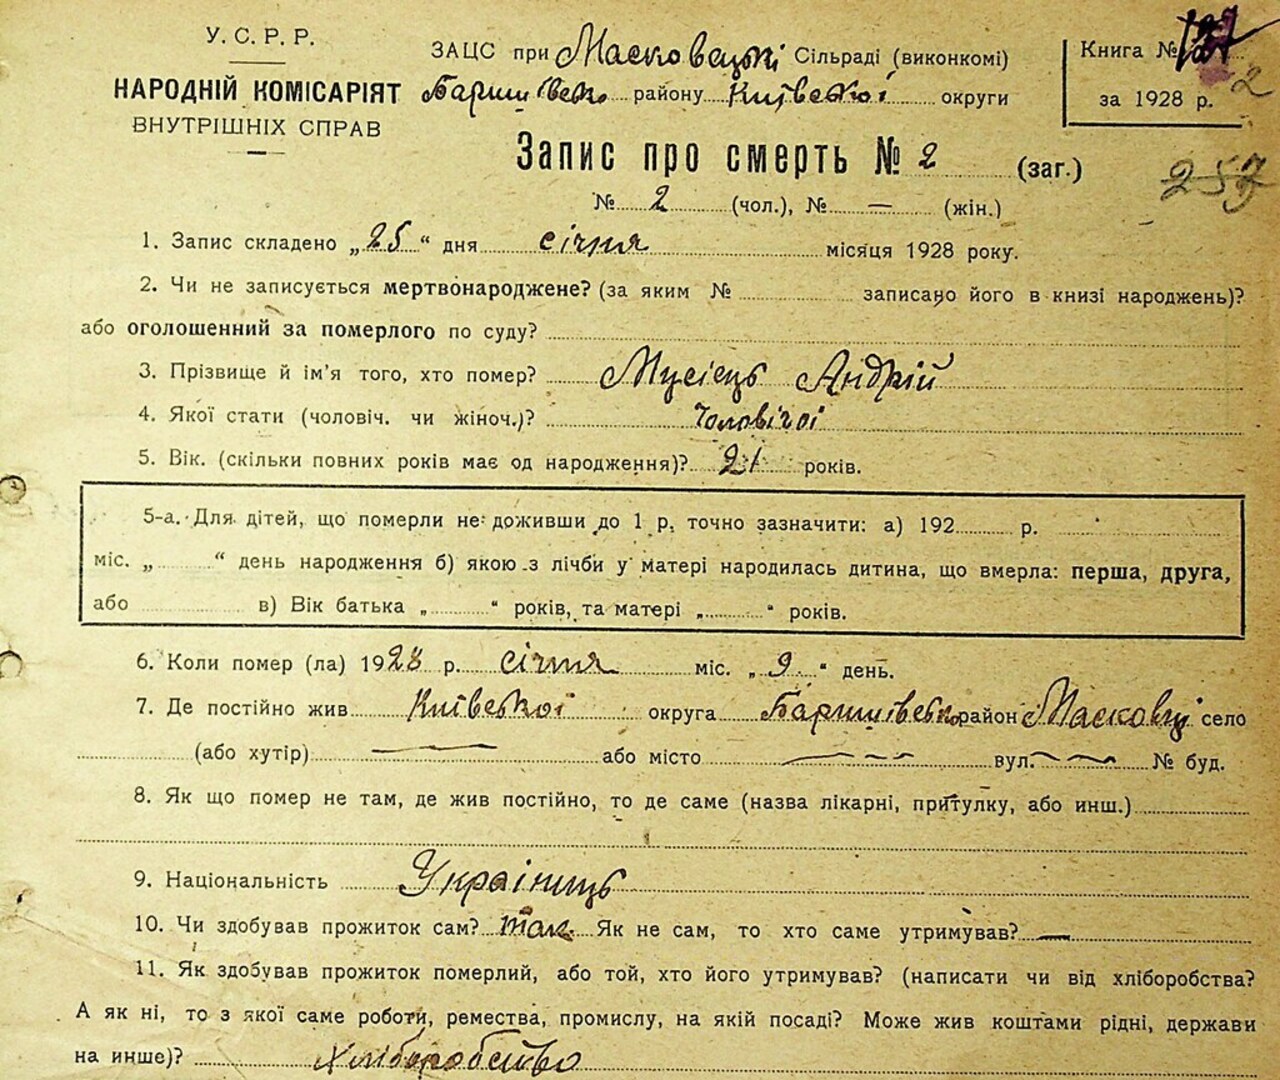 У. С. Р. Р.
НАРОДНІЙ КОМІСАРІЯТ
ВНУТРІШНІХ СПРАВ
ЗАЦС при Масковецькі Сільраді (виконкомі)
Баришівсько району Київської округи
Книга № 2
за 1928 р.
257
Запис про смерть № 2 (заг.)
№ 2 (чол.), № — (жін.)
1. Запис складено „25“ дня січня місяця 1928 року.
2. Чи не записується мертвонароджене? (за яким № записано його в книзі народжень)?
або оголошенний за померлого по суду?
3. Прізвище й ім'я того, хто помер? Мусієць Андрій
4. Якої стати (чоловіч. чи жіноч.)? чоловічої
5. Вік. (скільки повних років має од народження)? 21 років.
5-а. Для дітей, що померли не доживши до 1 р. точно зазначити: а) 192 р.
міс. „ “ день народження б) якою з лічби у матері народилась дитина, що вмерла: перша, друга,
або в) Вік батька „ “ років, та матері „ “ років.
6. Коли помер (ла) 1928 р. січня міс. „9“ день.
7. Де постійно жив Київської округа Баришівсько район Масковці село
(або хутір) — або місто — вул. — № буд.
8. Як що помер не там, де жив постійно, то де саме (назва лікарні, притулку, або инш.)
9. Національність Українець
10. Чи здобував прожиток сам? так Як не сам, то хто саме утримував? —
11. Як здобував прожиток померлий, або той, хто його утримував? (написати чи від хліборобства?
А як ні, то з якої саме роботи, ремества, промислу, на якій посаді? Може жив коштами рідні, держави
на инше)? Хліборобство